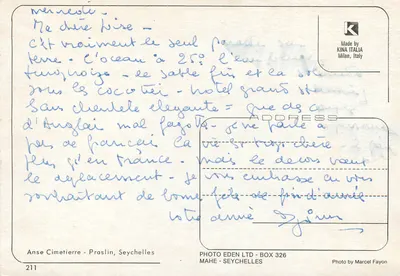 mercredi -
Ma chère
C'est vraiment le seul
terre - L'océan à 25° l'eau
turquoise - le sable fin et la
sous les cocotier - hotel grand
Sans clientele elegante = que des
d'Anglais mal fagotés - je ne parle
pas de français la vie si trop chère
plus qu'en France - mais le decors vaut
le deplacement - Je vous embrasse en vous
souhaitant de bonne fête de fin d'année
votre
K
Made by
KINA ITALIA
Milan, Italy
ADDRESS
211
Anse Cimetierre - Praslin, Seychelles
PHOTO EDEN LTD - BOX 326
MAHE - SEYCHELLES
Photo by Marcel Fayon